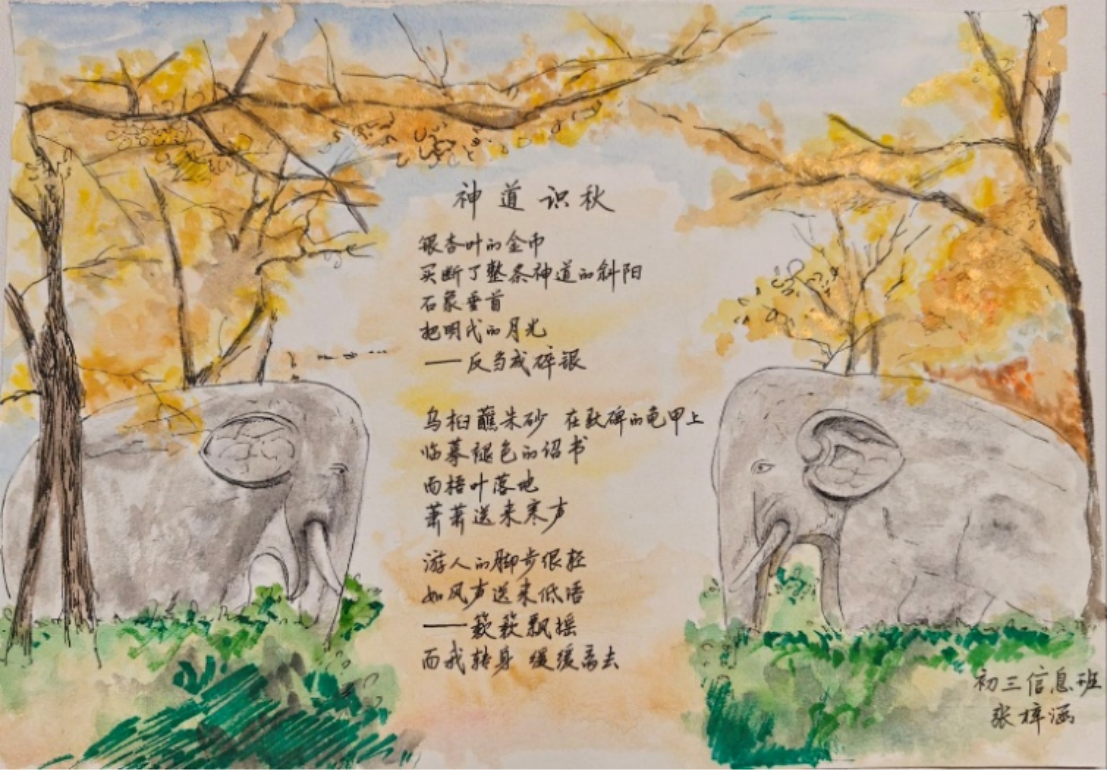 神道识秋
银杏叶的金币
买断了整条神道的斜阳
石象垂首
把明代的月光
——反刍成碎银
乌桕蘸朱砂 在驮碑的龟甲上
临摹褪色的诏书
而梧叶落地
萧萧送来寒声
游人的脚步很轻
如风声送来低语
——簌簌飘摇
而我转身 缓缓离去
初三信息班
张梓涵